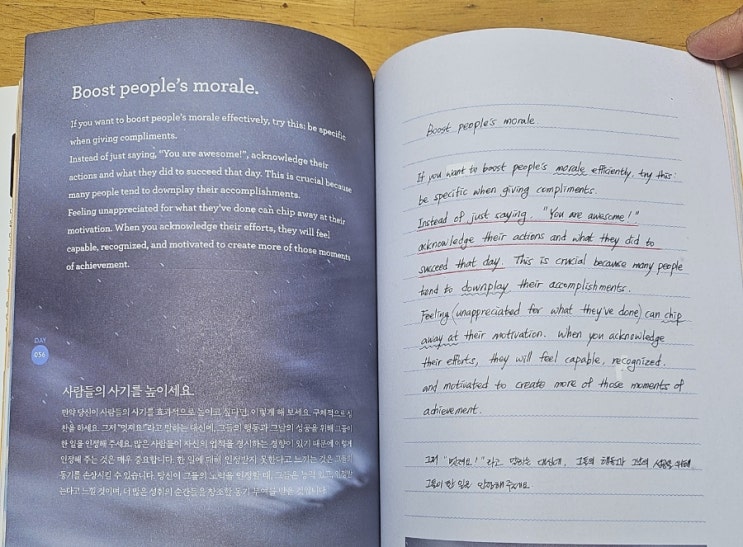 Boost people's morale.
If you want to boost people's morale effectively, try this: be specific
when giving compliments.
Instead of just saying, "You are awesome!", acknowledge their
actions and what they did to succeed that day. This is crucial because
many people tend to downplay their accomplishments.
Feeling unappreciated for what they've done can chip away at their
motivation. When you acknowledge their efforts, they will feel
capable, recognized, and motivated to create more of those moments
of achievement.
DAY
036
사람들의 사기를 높이세요.
만약 당신이 사람들의 사기를 효과적으로 높이고 싶다면, 이렇게 해 보세요. 구체적으로 칭
찬을 하세요. 그저 "멋져요!"라고 말하는 대신에, 그들의 행동과 그날의 성공을 위해 그들이
한 일을 인정해 주세요. 많은 사람들이 자신의 업적을 경시하는 경향이 있기 때문에 이렇게
인정해 주는 것은 매우 중요합니다. 한 일에 대해 인정받지 못한다고 느끼는 것은 그들의
동기를 손상시킬 수 있습니다. 당신이 그들의 노력을 인정할 때, 그들은
는다고 느낄 것이며, 더 많은 성취의 순간들을 창조할 동기 부여를
Boost people's morale
If you want to boost people's morale efficiently, try this:
be specific when giving compliments.
Instead of just saying. "You are awesome!"
acknowledge their actions and what they did to
succeed that day. This is crucial because many people
tend to downplay their accomplishments.
Feeling (unappreciated for what they've done) can chip
away at their motivation. When you acknowledge
their efforts, they will feel capable, recognized.
and motivated to create more of those moments of
achievement.
그저 "멋져요!"라고 말하는 대신에, 그들의 행동과 그날의 성공을 위해
그들이 한 일을 인정해주세요.